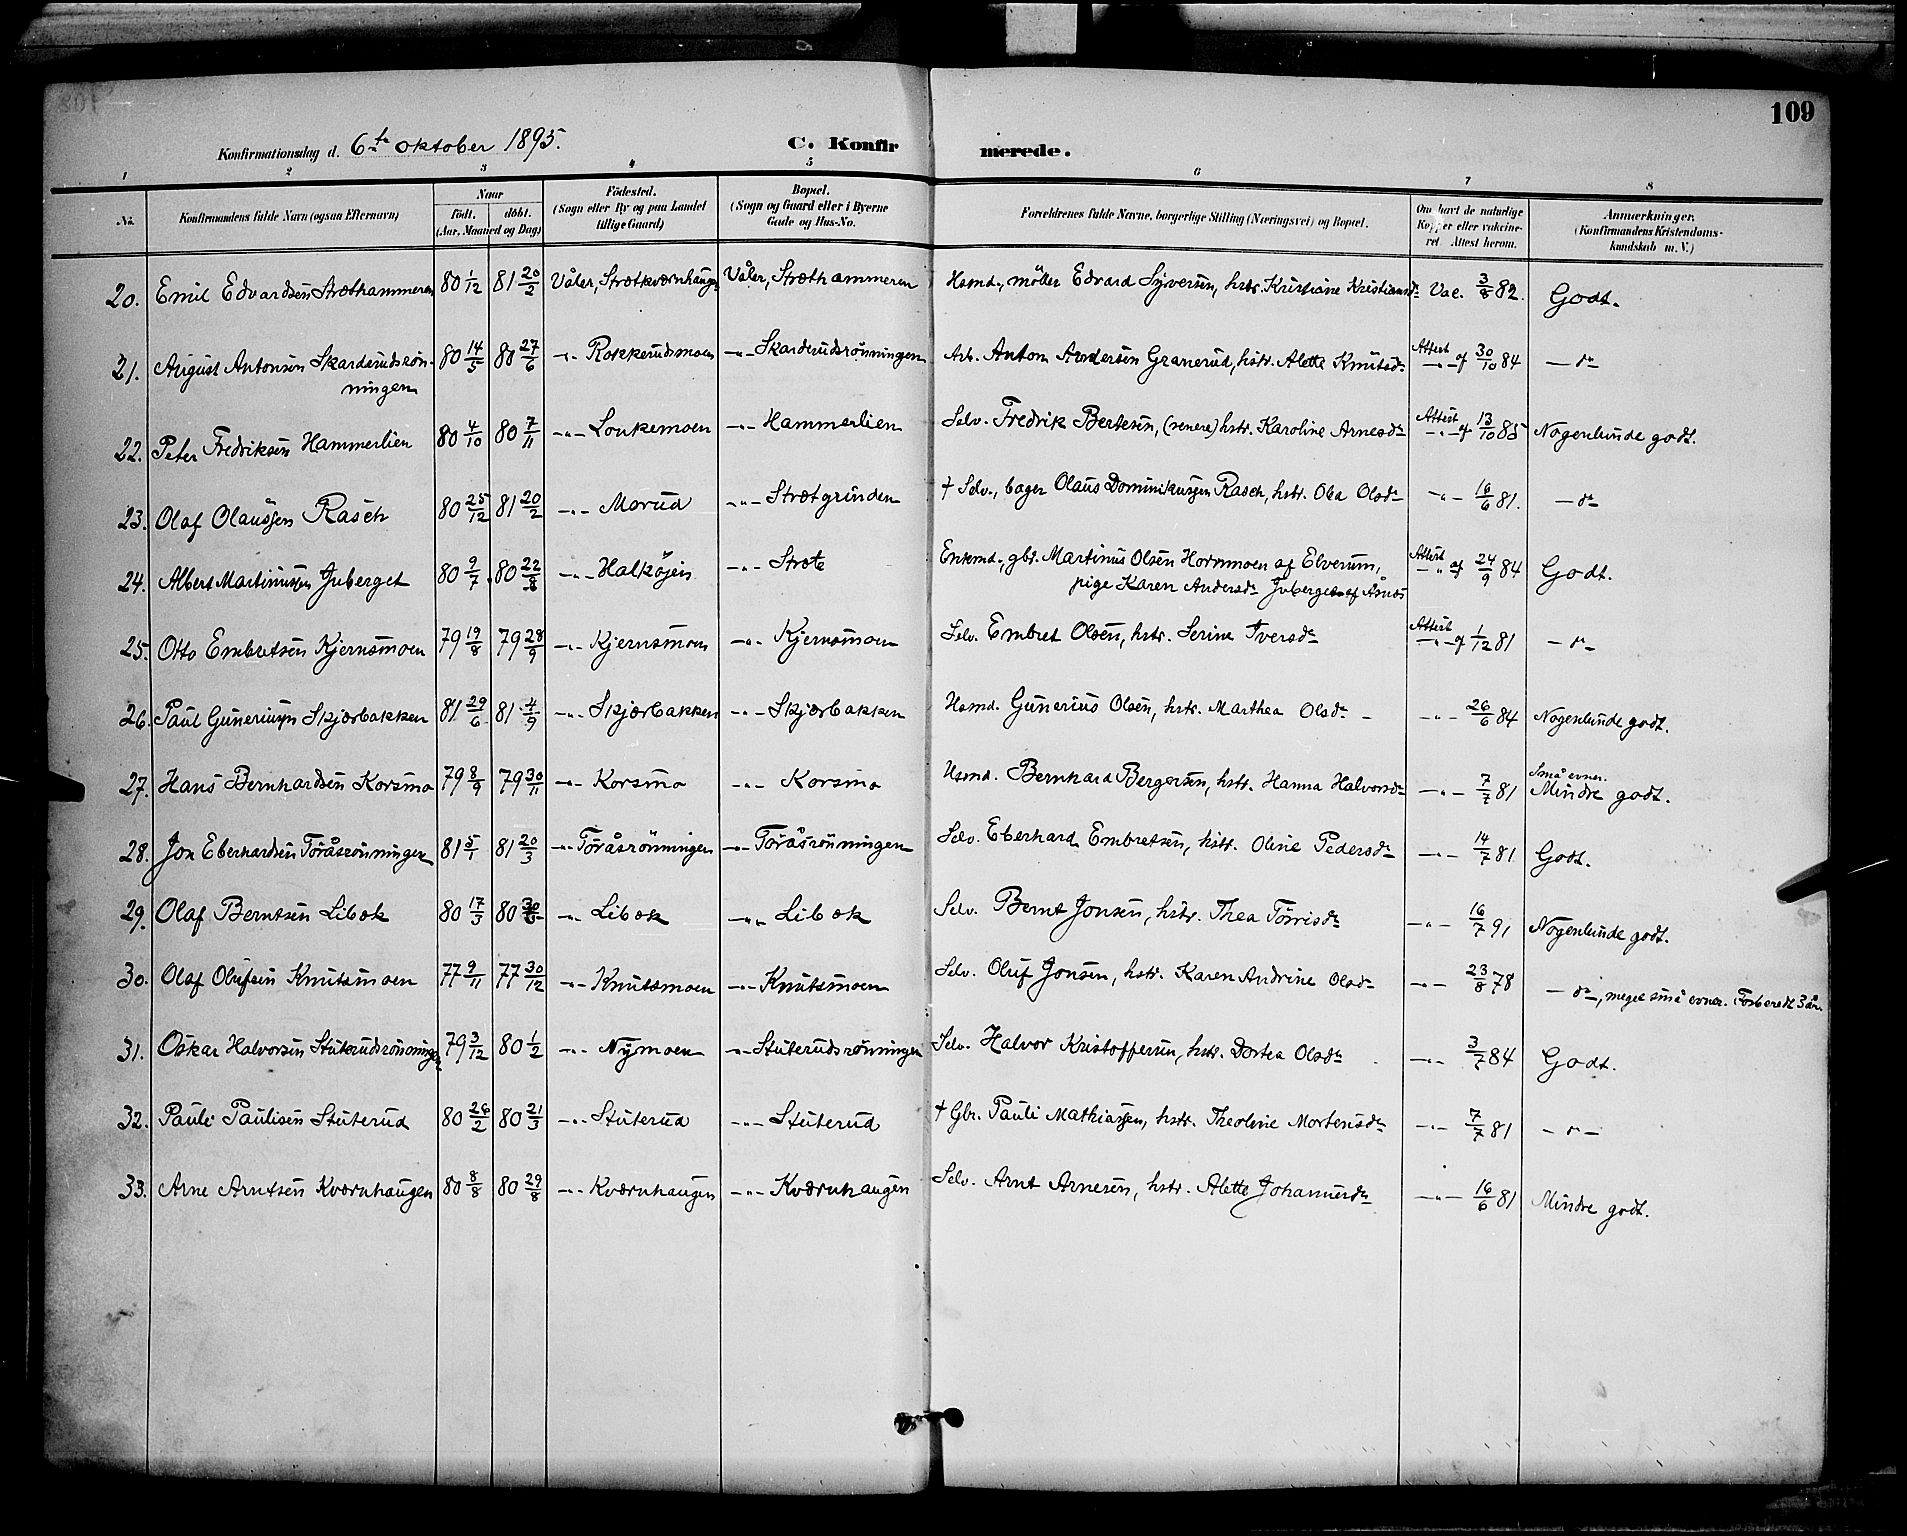 109
Konfirmationsdag d. 6te oktober 1895. C. Konfirmerede.
1 2 3 4 5 6 7 8
No. Konfirmandens fulde Navn (ogsaa Efternavn) Naar født. døbt. (Aar, Maaned og Dag) Fødested. (Sogn eller By og paa Landet tillige Gaard) Bopæl. (Sogn og Gaard eller i Byerne Gade og Hus-No. Forældrenes fulde Navne, borgerlige Stilling (Næringsvei) og Bopæl. Om havt de naturlige Kopper eller vakcineret. Attest herom. Anmærkninger. (Konfirmandens Kristendomskundskab m. V.)
20. Emil Edvardsen Stræthammeren 80 1/12 81 20/2 Våler, Strætkværnhaugen Våler, Stræthammeren Hsmd., møller Edvard Syversen, hstr. Kristiane Kristiansdr Vac. 3/8 82. Godt.
21. August Antonsen Skarderudsrøn- 80 14/5 80 27/6 -"- Rokkerudsmoen -"- Skarderudsrønningen Arb. Anton Andersen Granerud, hstr. Alette Knutsdr Attest -"- af 30/10 84 — dr —
ningen
22. Peter Fredriksen Hammerlien 80 4/10 80 7/11 -"- Loukemoen -"- Hammerlien Selv. Fredrik Bertesen, (senere) hstr. Karoline Arnesdr Attest -"- af 13/10 85 Nogenlunde godt.
23. Olaf Olaussen Rasch 80 25/12 81 20/2 -"- Morud -"- Strætgrinden † Selv., bager Olaus Dominikussen Rasch, hstr. Olea Olsdr -"- 16/6 81. — dr —
24. Albert Martinussen Juberget 80 9/7 80 22/8 -"- Halkøjen -"- Stræte Enkemd., gbr. Martinus Olsen Hornmoen af Elverum,
pige Karen Andersdr Juberget af Åsnes Attest -"- af 24/9 84 Godt.
25. Otto Embretsen Kjernsmoen 79 19/8 79 28/9 -"- Kjernsmoen -"- Kjernsmoen Selv. Embret Olsen, hstr. Serine Iversdr Attest -"- af 1/12 81 — dr —
26. Paul Gunerius[s]en Skjærbakken 81 29/6 81 4/9 -"- Skjærbakken -"- Skjærbakken Hsmd. Gunerius Olsen, hstr. Marthea Olsdr -"- 26/6 84 Nogenlunde godt.
27. Hans Bernhardsen Korsmo 79 8/9 79 30/11 -"- Korsmo -"- Korsmo Hsmd. Bernhard Bergersen, hstr. Hanna Halvorsdr -"- 7/7 81 Små evner. Mindre godt.
28. Jon Eberhardsen Toråsrønningen 81 5/1 81 20/3 -"- Toråsrønningen -"- Toråsrønningen Selv. Eberhard Embretsen, hstr. Oline Pedersdr -"- 14/7 81 Godt.
29. Olaf Berntsen Libæk 80 17/3 80 30/5 -"- Libæk -"- Libæk Selv. Bernt Jonsen, hstr. Thea Torrisdr -"- 16/7 91 Nogenlunde godt.
30. Olaf Olufsen Knutsmoen 77 9/11 77 30/12 -"- Knutsmoen -"- Knutsmoen Selv. Oluf Jonsen, hstr. Karen Andrine Olsdr -"- 23/8 78 — dr —, meget små evner. Forberedt 3 år.
31. Oskar Halvorsen Stuterudsrønningen 79 3/12 80 1/2 -"- Nymoen -"- Stuterudsrønningen Selv. Halvor Kristoffersen, hstr. Dortea Olsdr -"- 3/7 84 Godt.
32. Pauli Paulisen Stuterud 80 26/2 80 21/3 -"- Stuterud -"- Stuterud † Gbr. Pauli Mathiassen, hstr. Theoline Mortensdr -"- 7/7 81 — dr —
33. Arne Arntsen Kværnhaugen 80 8/8 80 29/8 -"- Kværnhaugen -"- Kværnhaugen Selv. Arnt Arnesen, hstr. Alette Johannesdr -"- 16/6 81 Mindre godt.